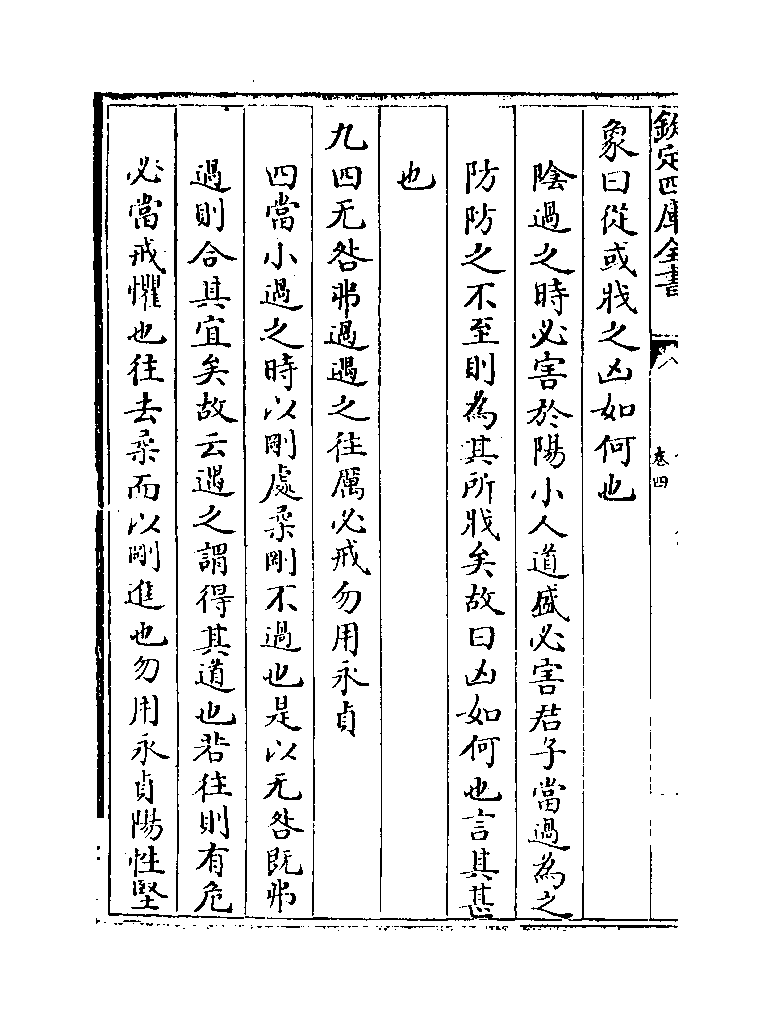 欽定四庫全書
卷四
象曰從或戕之凶如何也
陰過之時必害於陽小人道盛必害君子當過為之
防防之不至則為其所戕矣故曰凶如何也言其甚
也
九四无咎弗過遇之往厲必戒勿用永貞
四當小過之時以剛處柔剛不過也是以无咎既弗
過則合其宜矣故云遇之謂得其道也若往則有危
必當戒懼也往去柔而以剛進也勿用永貞陽性堅